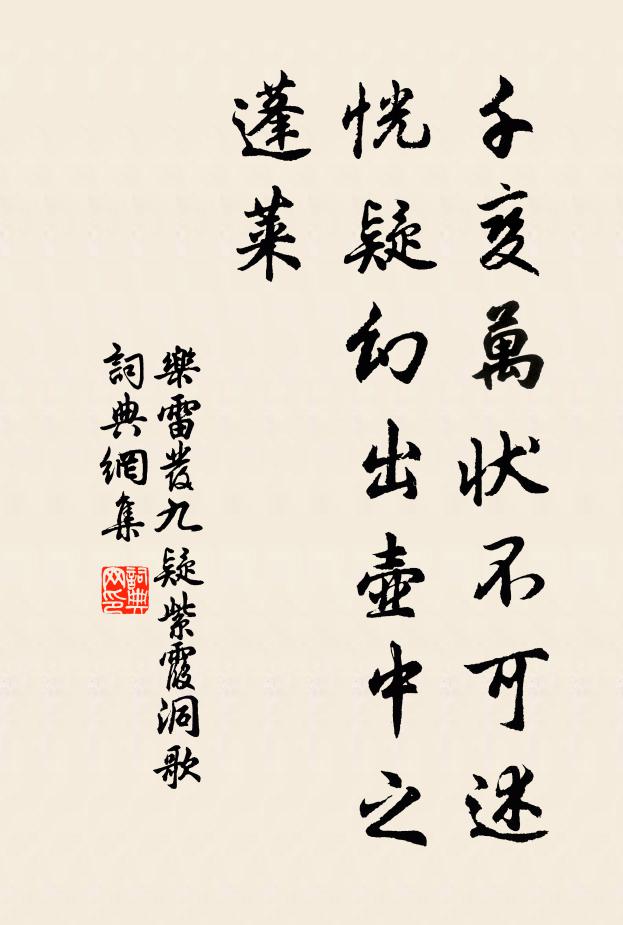 千变萬状不可述
恍疑幻出壺中之
蓬萊
樂雷發九疑紫霞洞歌
詞典網集
詞典網印